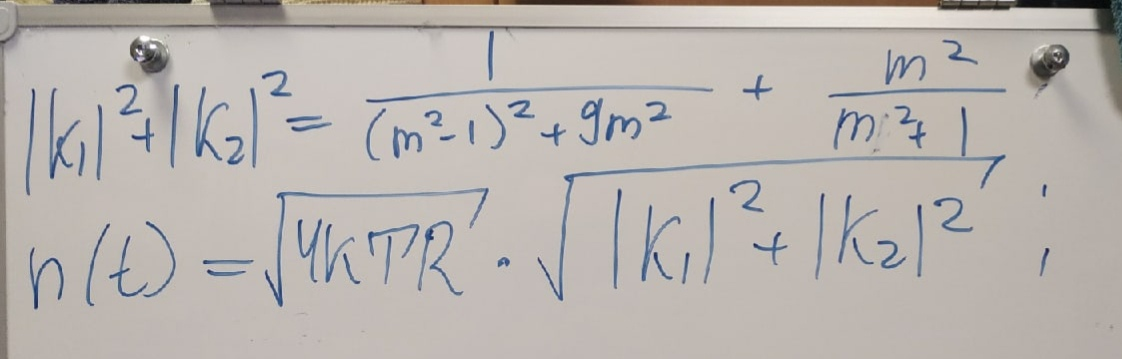 |K₁|² + |K₂|² = 1/((m²-1)² + 9m²) + m²/(m²+1)
n(t) = √(4kTR) · √(|K₁|² + |K₂|²) ;